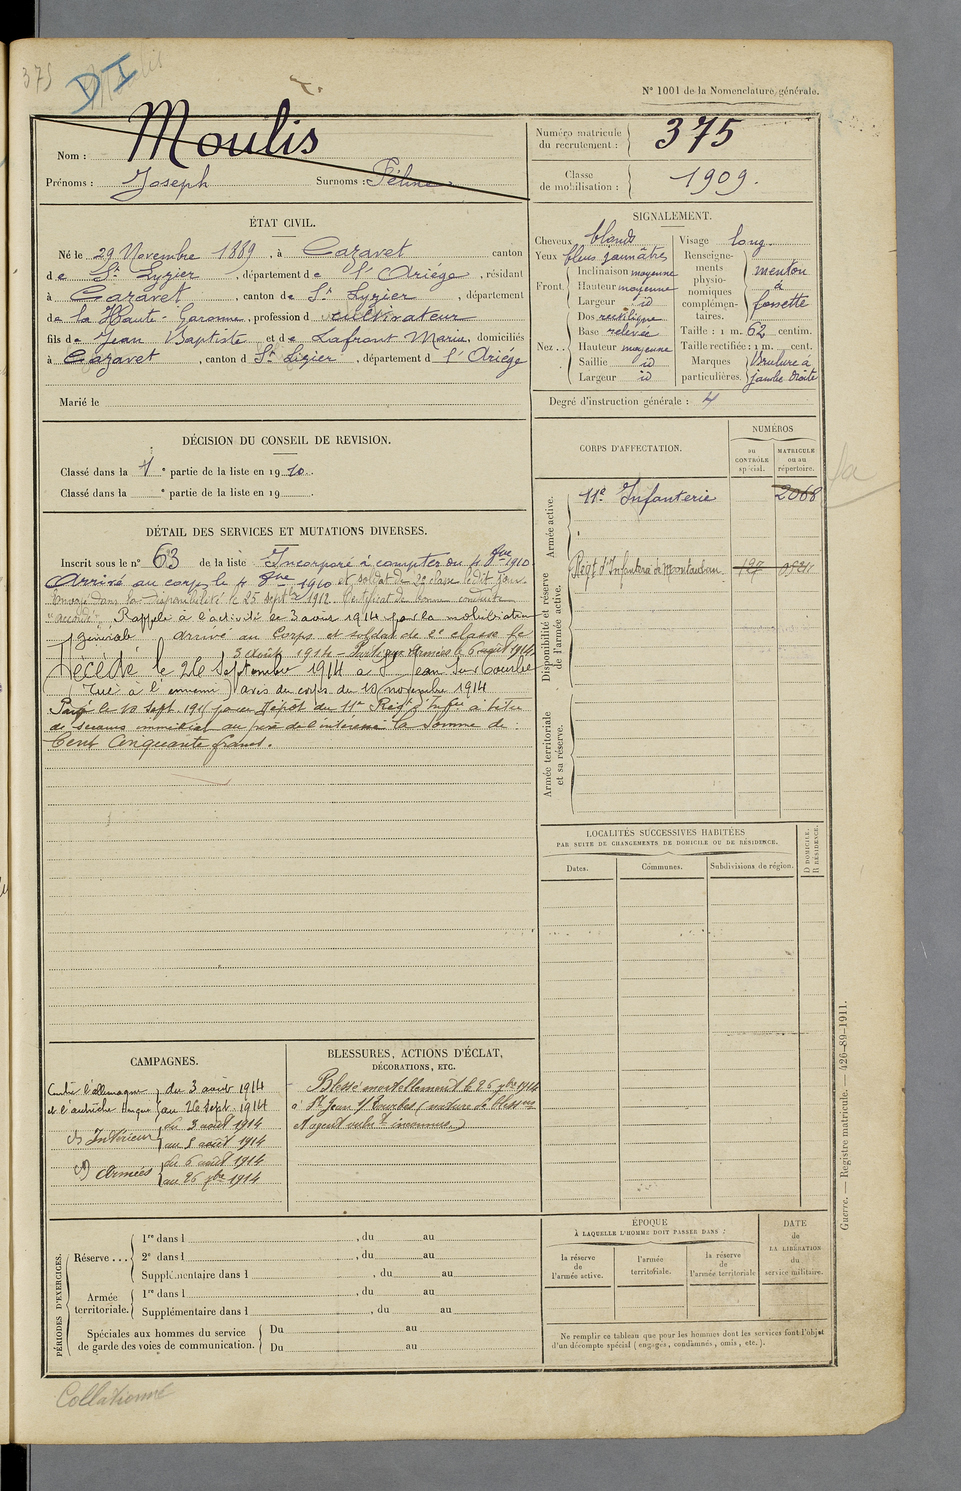 375
DI
Moulis
N° 1001 de la Nomenclature générale.
Nom : Moulis
Prénoms : Joseph Surnoms :
Numéro matricule du recrutement : 375
Classe de mobilisation : 1909.
ÉTAT CIVIL.
Né le 29 Novembre 1889, à Cazavet canton
de St Lyzier, département de l'Ariége, résidant
à Cazavet, canton de St Lyzier, département
de la Haute-Garonne, profession d cultivateur
fils de Jean Baptiste et de Lafront Marie, domiciliés
à Cazavet, canton d St Lizier, département d l'Ariége
Marié le
SIGNALEMENT.
Cheveux blonds
Yeux bleus jaunâtres
Front. Inclinaison moyenne
Hauteur moyenne
Largeur id
Nez. Dos rectiligne
Base relevée
Hauteur moyenne
Saillie id
Largeur id
Visage long
Renseignements physionomiques complémentaires. menton à fossette
Taille : 1 m. 62 centim.
Taille rectifiée : 1 m. cent.
Marques particulières. Brulure à jambe droite
Degré d'instruction générale : 4
DÉCISION DU CONSEIL DE REVISION.
Classé dans la 1 e partie de la liste en 1910.
Classé dans la e partie de la liste en 19 .
CORPS D'AFFECTATION.
NUMÉROS
au CONTRÔLE spécial.
MATRICULE ou au répertoire.
Armée active.
11e Infanterie 2068
Disponibilité et réserve de l'armée active.
Régt d'Infanterie de Montauban
Armée territoriale et sa réserve.
DÉTAIL DES SERVICES ET MUTATIONS DIVERSES.
Inscrit sous le n° 63 de la liste Incorporé à compter du 4 8bre 1910.
Arrivé au corps le 4 8bre 1910 et soldat de 2e classe ledit jour.
Envoyé dans la disponibilité le 25 septbre 1912. Certificat de bonne conduite
"accordé". Rappelé à l'activité le 3 aout 1914 par la mobilisation
générale arrivé au Corps et soldat de 2e classe le
3 Août 1914 - Parti aux Armées le 6 août 1914
Décédé le 26 Septembre 1914 à St Jean Sur Tourbe
(Tué à l'ennemi) avis du corps du 13 novembre 1914
Payé le 10 Sept. par le Dépôt du 11e Régt d'Infie à titre
de secours immédiat au père de l'intéressé la Somme de :
Cent Cinquante francs.
LOCALITÉS SUCCESSIVES HABITÉES
PAR SUITE DE CHANGEMENTS DE DOMICILE OU DE RÉSIDENCE.
Dates. Communes. Subdivisions de région.
D DOMICILE.
R RÉSIDENCE.
CAMPAGNES.
Contre l'allemagne du 3 août 1914
et l'autriche Hongrie au 26 sept. 1914
Intérieur du 3 août 1914
au 5 août 1914
Armées du 6 août 1914
au 26 7bre 1914
BLESSURES, ACTIONS D'ÉCLAT,
DÉCORATIONS, ETC.
Blessé mortellement le 26 7bre 1914
à St Jean s/ Tourbes (nature de blessure
et agent vulnt inconnus)
PÉRIODES D'EXERCICES.
Réserve ... 1re dans l , du au
2e dans l , du au
Supplémentaire dans l , du au
Armée territoriale. 1re dans l , du au
Supplémentaire dans l , du au
Spéciales aux hommes du service de garde des voies de communication. Du au
Du au
ÉPOQUE
À LAQUELLE L'HOMME DOIT PASSER DANS :
la réserve de l'armée active.
l'armée territoriale.
la réserve de l'armée territoriale
DATE de LA LIBÉRATION du service militaire.
Ne remplir ce tableau que pour les hommes dont les services font l'objet
d'un décompte spécial (engagés, condamnés, omis, etc.).
Guerre. — Registre matricule. — 426-89-1911.
Collationné